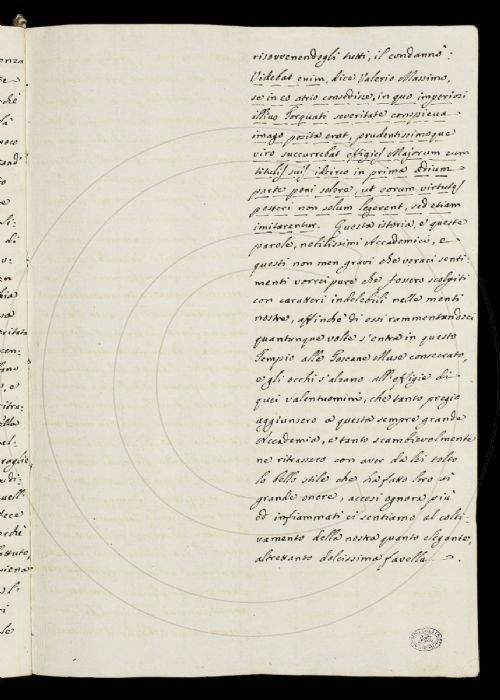 risovvenendogli tutti, il condannò:
Videbat enim, dice Valerio Massimo,
se in eo atrio consedisse, in quo imperiosi
illius Torquati severitate conspicua
imago posita erat, prudentissimoque
viro succurrebat effigies Majorum cum
titulis suis idcirco in prima Ædium
parte poni solere, ut eorum virtutes
posteri non solum legerent, sed etiam
imitarentur. Questa istoria, e queste
parole, nobilissimi Accademici, e
questi non men gravi che veraci senti-
menti vorrei pure che fossero scolpiti
con caratteri indelebili nelle menti
nostre, affinchè di essi rammentandoci
quantunque volte s'entra in questo
Tempio alle Toscane Muse consecrato,
e gli occhi s'alzano all'effigie di
quei valentuomini, che tanto pregio
aggiunsero a questa sempre grande
Accademia, e tanto scambievolmente
ne ritrassero con aver da lei tolto
lo bello stile che ha fatto loro sì
grande onore, accesi ognora più
ed infiammati ci sentiamo al colti-
vamento della nostra quanto elegante,
altrettanto dolcissima favella.